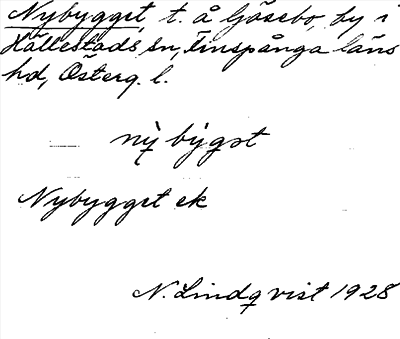 Nybygget, t. å Gåsebo, by i
Hällestads sn, Finspånga läns
hd, Österg. l.
nỳ býgət
Nybygget ek
N. Lindqvist 1928